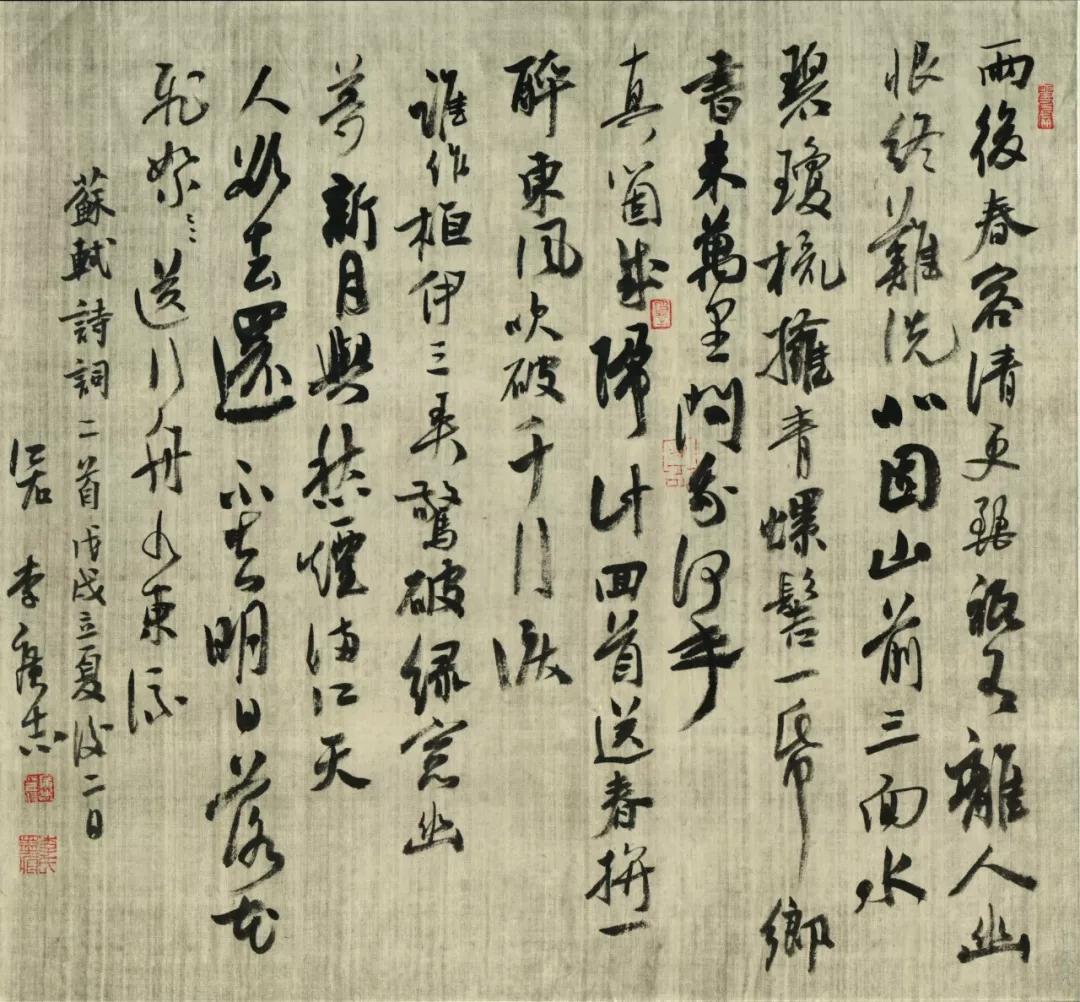 雨後春容清更麗祗有離人幽
恨終難洗北固山前三面水
碧瓊梳擁青螺髻一帋鄉
書來萬里問我何年
真箇成歸計回首送春拚一
醉東風吹破千行淚
誰作桓伊三弄驚破緑窓幽
夢新月與愁煙滿江天
人欲去還不去明日落花
飛絮〻〻送行舟水東流
蘇軾詩詞二首戊戌立夏後二日
李